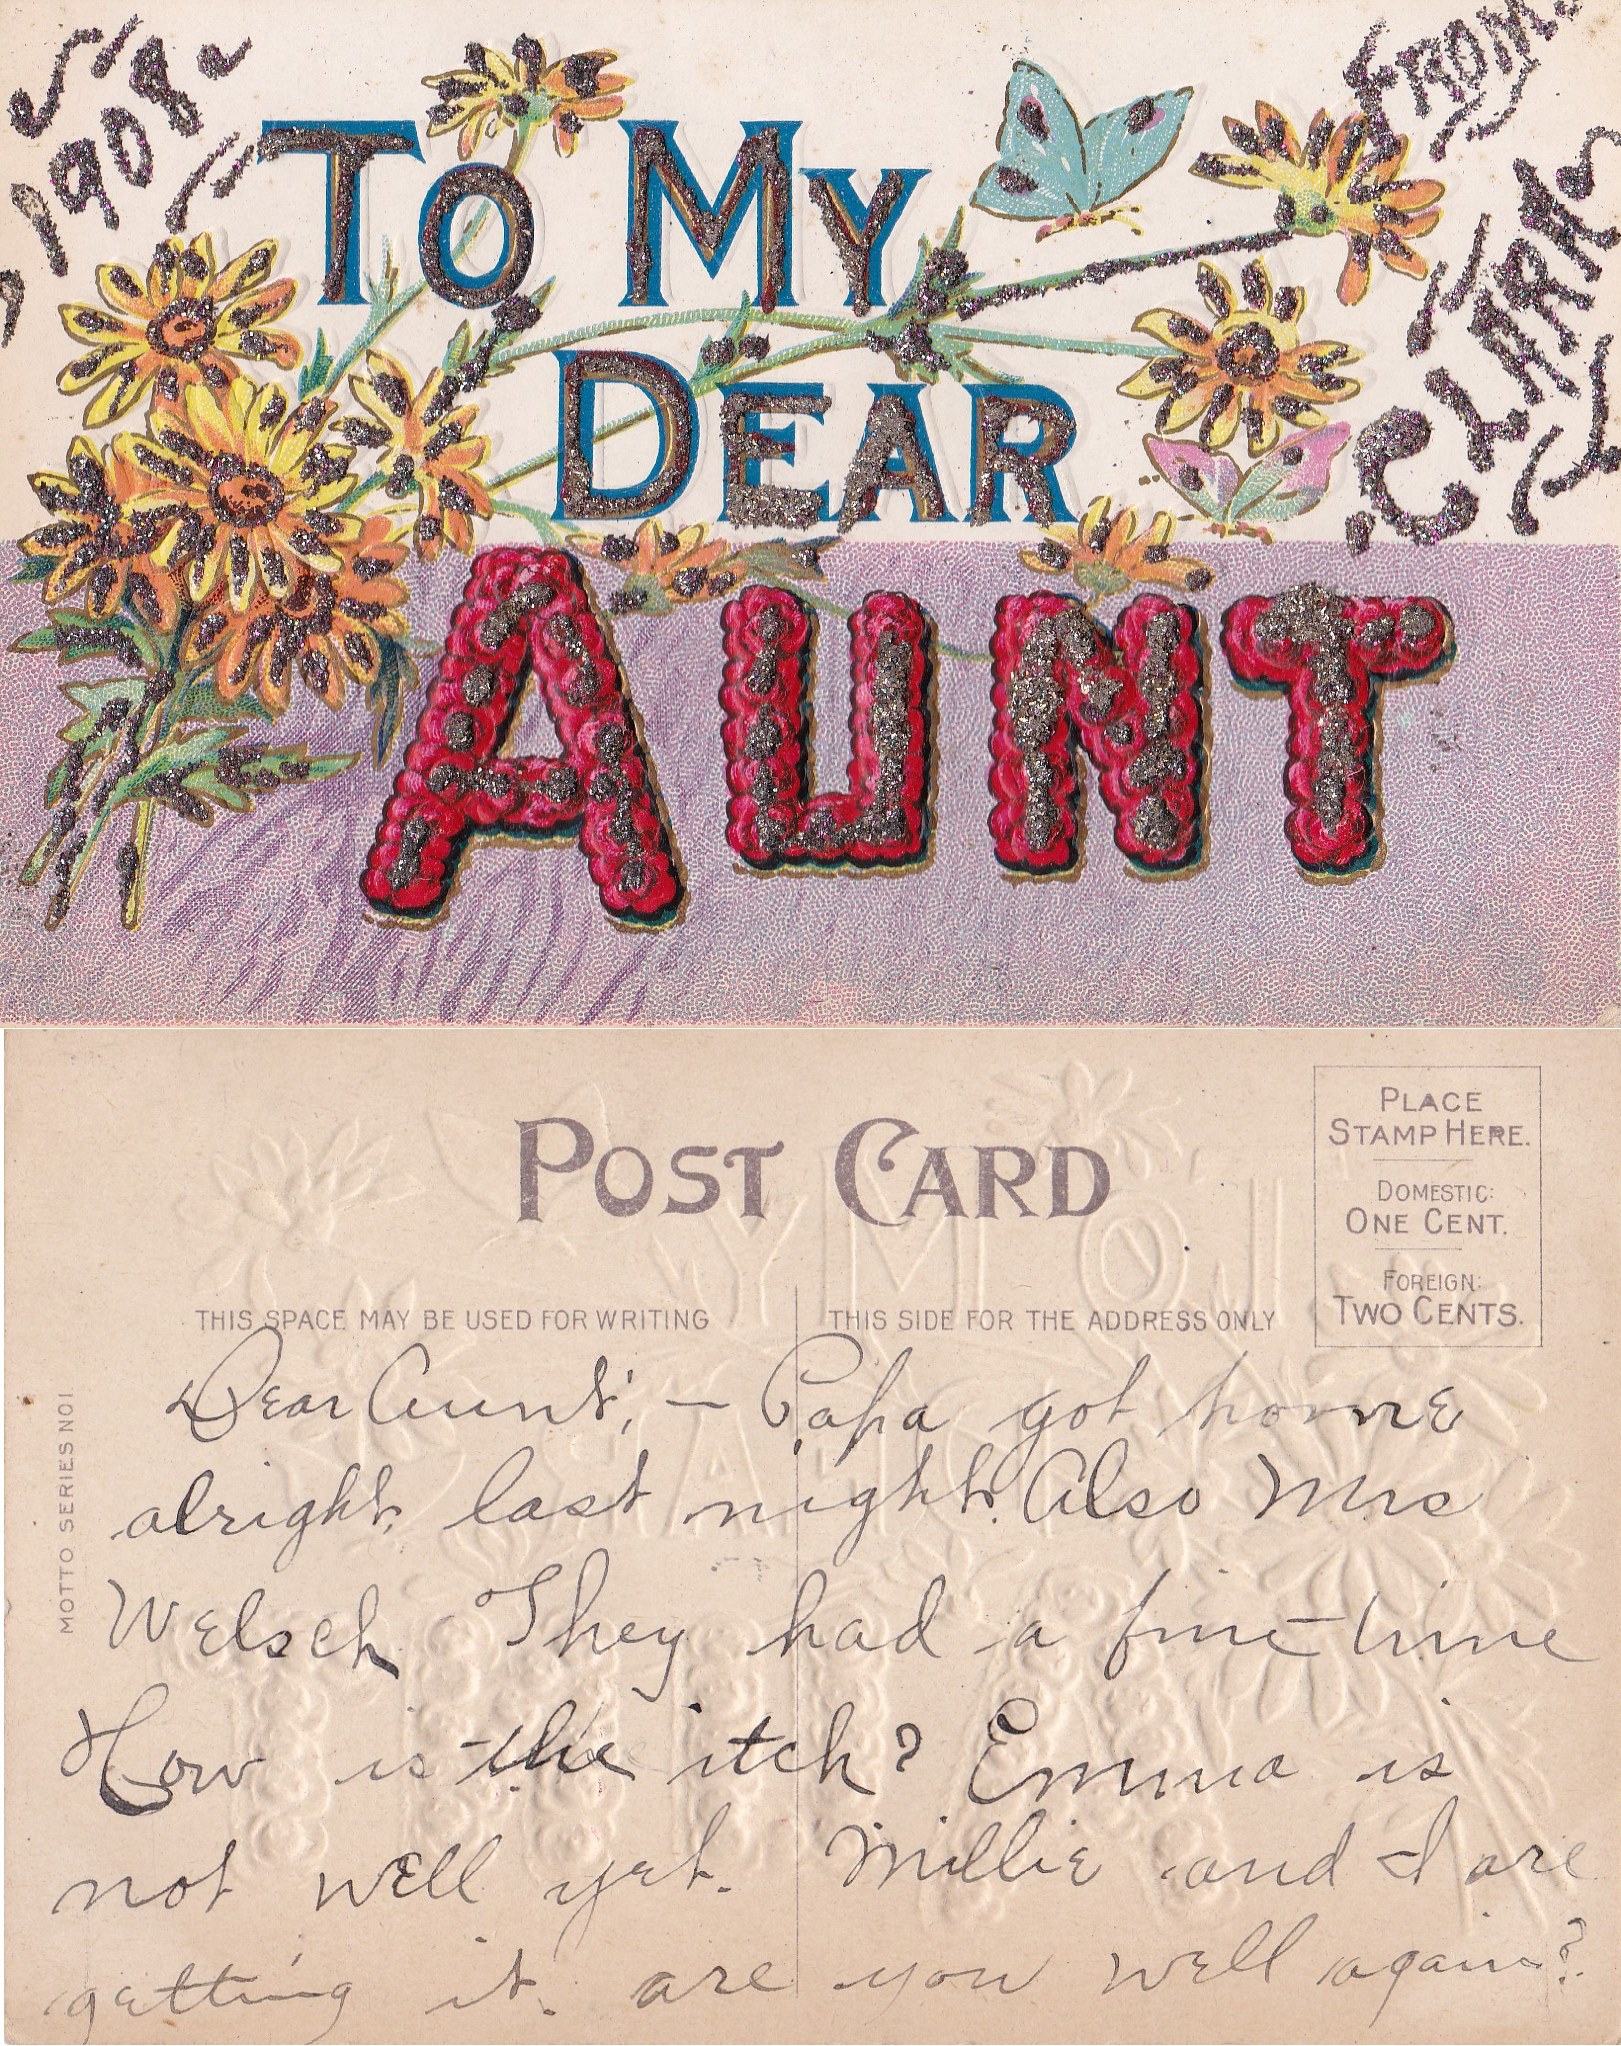 1908
FROM.
CLARA
TO MY
DEAR
AUNT
POST CARD
PLACE
STAMP HERE.
DOMESTIC:
ONE CENT.
FOREIGN:
TWO CENTS.
THIS SPACE MAY BE USED FOR WRITING
THIS SIDE FOR THE ADDRESS ONLY
MOTTO SERIES NO 1
Dear Aunt; — Papa got home
alright last night. Also Mrs
Welsch They had a fine time
How is the itch? Emma is
not well yet. Millie and I are
getting it. are you well again?